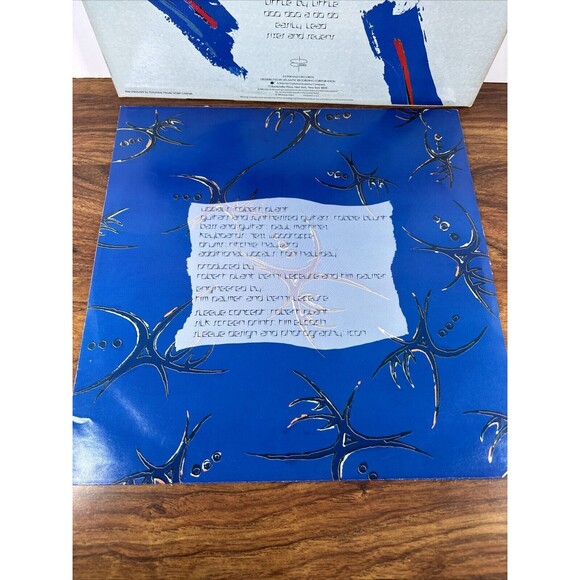 little by little
doo doo a do do
easily lead
sixes and sevens
vocals: robert plant
guitar and synthesized guitar: robbie blunt
bass and guitar: paul martinez
keyboards: jezz woodroffe
drums: ritchie hayward
additional vocals: toni halliday
produced by
robert plant benji lefevre and tim palmer
engineered by
tim palmer and benji lefevre
sleeve concept: robert plant
silk screen prints: kim
sleeve design and photography: icon